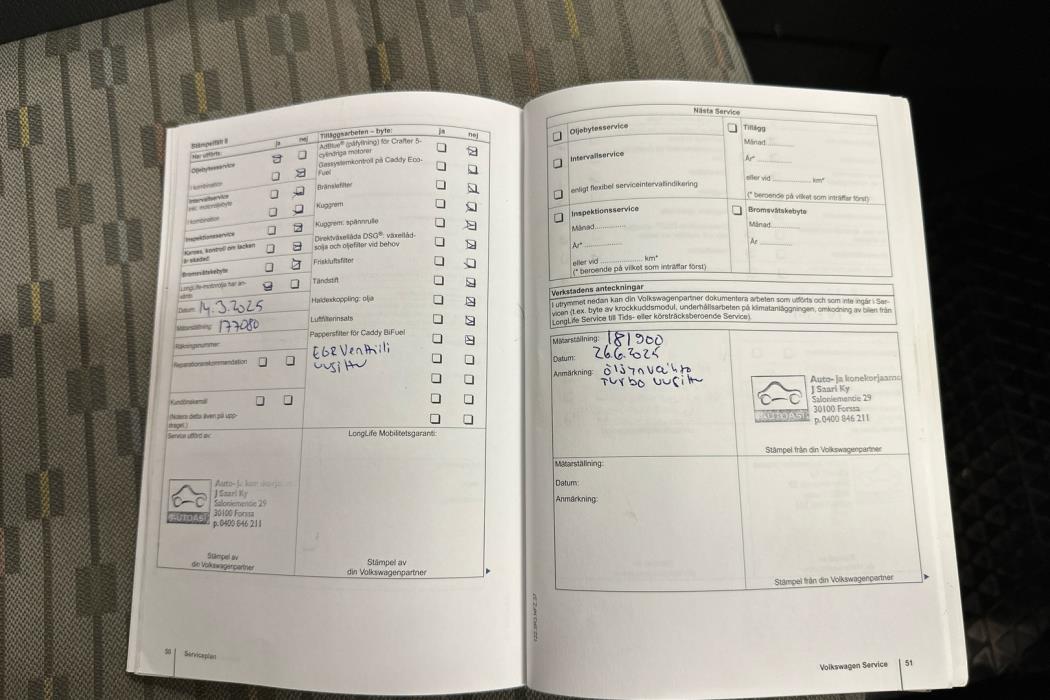 Stämpelfält 8
Har utförts: ja nej
Oljebytesservice
I kombination
Intervallservice
inkl. motoroljebyte
I kombination
Inspektionsservice
Kaross, kontroll om lacken
är skadad
Bromsvätskebyte
LongLife-motorolja har an-
vänts
Datum: 14.3.2025
Mätarställning: 177080
Räkningsnummer:
Reparationsrekommendation
Kundönskemål
(Notera detta även på upp-
draget.)
Service utförd av:
Auto- ja konekorjaamo
J Saari Ky
Saloniemende 29
30100 Forssa
p.0400 846 211
AUTOASI
Stämpel av
din Volkswagenpartner
Tilläggsarbeten – byte: ja nej
AdBlue® (påfyllning) för Crafter 5-
cylindriga motorer
Gassystemkontroll på Caddy Eco-
Fuel
Bränslefilter
Kuggrem
Kuggrem: spännrulle
Direktväxellåda DSG®: växellåd-
solja och oljefilter vid behov
Friskluftsfilter
Tändstift
Haldexkoppling: olja
Luftfilterinsats
Pappersfilter för Caddy BiFuel
EGR Venttiili
uusittu
LongLife Mobilitetsgaranti:
Stämpel av
din Volkswagenpartner
50 Serviceplan
Nästa Service
Oljebytesservice
Intervallservice
enligt flexibel serviceintervallindikering
Tillägg
Månad
År*
eller vid km*
(* beroende på vilket som inträffar först)
Inspektionsservice
Månad
År*
eller vid km*
(* beroende på vilket som inträffar först)
Bromsvätskebyte
Månad
År
Verkstadens anteckningar
I utrymmet nedan kan din Volkswagenpartner dokumentera arbeten som utförts och som inte ingår i Ser-
vicen (t.ex. byte av krockkuddsmodul, underhållsarbeten på klimatanläggningen, omkodning av bilen från
LongLife Service till Tids- eller körsträcksberoende Service).
Mätarställning: 181900
Datum: 26.6.2025
Anmärkning: öljynvaihto
Turbo uusittu
Auto- ja konekorjaamo
J Saari Ky
Saloniemende 29
30100 Forssa
p.0400 846 211
AUTOASI
Stämpel från din Volkswagenpartner
Mätarställning:
Datum:
Anmärkning:
Stämpel från din Volkswagenpartner
Volkswagen Service 51